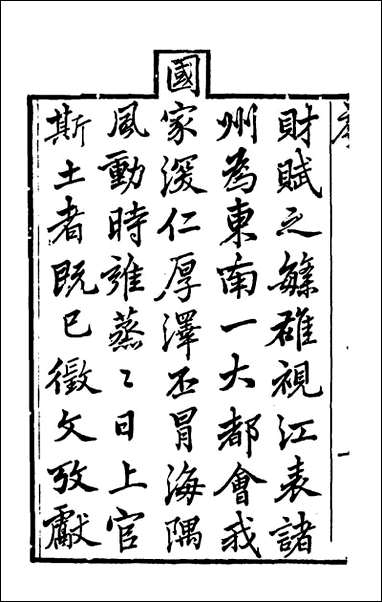 財賦之繇雄視江表諸
州為東南一大都會我
國家深仁厚澤丕冒海隅
風動時雍蒸〻日上官
斯土者既已徵文攷獻